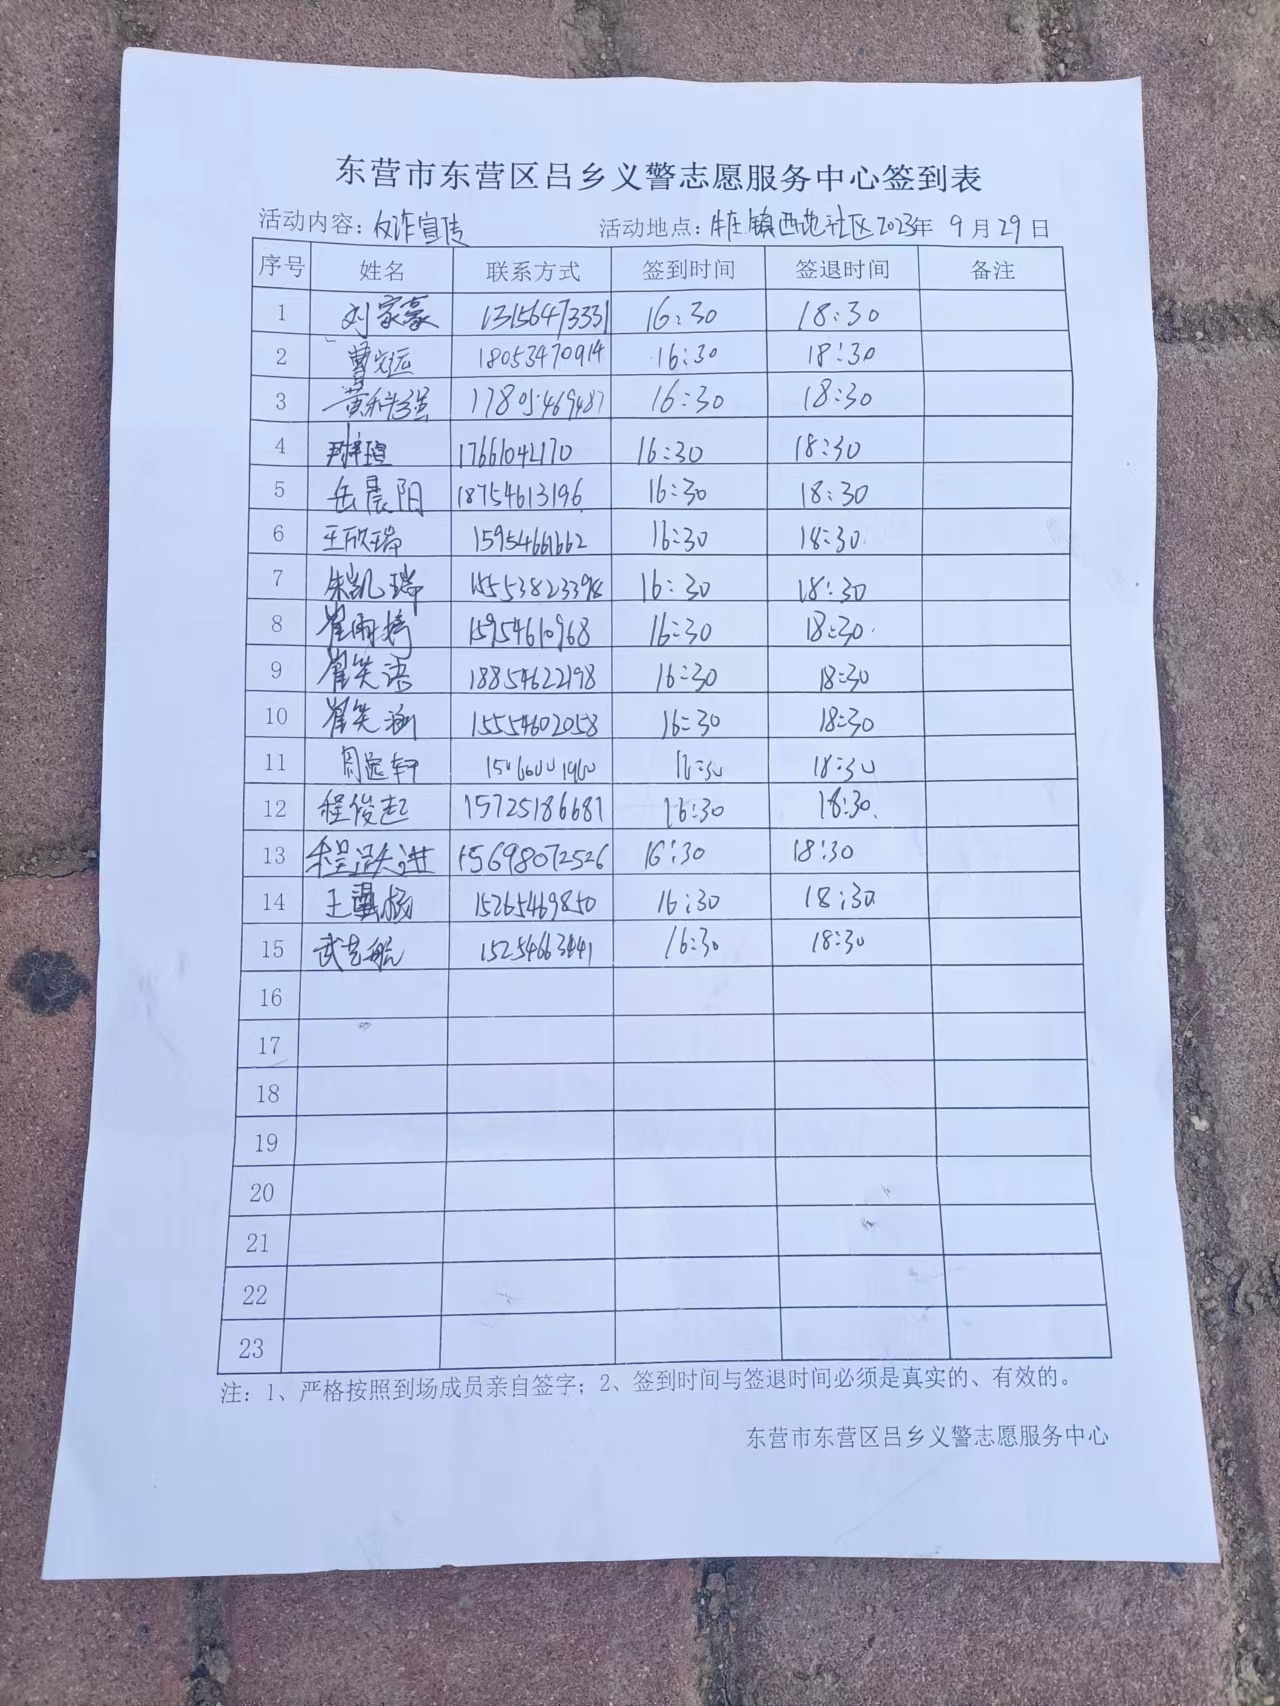 东营市东营区吕乡义警志愿服务中心签到表
活动内容：反诈宣传 活动地点：牛庄镇西地社区 2023年 9月29日
序号 姓名 联系方式 签到时间 签退时间 备注
1 刘家豪 13156473331 16:30 18:30
2 18053470914 16:30 18:30
3 黄科强 17805469487 16:30 18:30
4 17661042170 16:30 18:30
5 岳晨阳 18754613196 16:30 18:30
6 王欣瑞 15954661662 16:30 18:30
7 朱凯瑞 15553823398 16:30 18:30
8 崔雨婷 15954610968 16:30 18:30
9 崔笑语 18854622198 16:30 18:30
10 崔笑涵 15554602058 16:30 18:30
11 16:30 18:30
12 程俊起 15725186681 16:30 18:30
13 15698072526 16:30 18:30
14 15265469850 16:30 18:30
15 武艺航 15254663441 16:30 18:30
16
17
18
19
20
21
22
23
注：1、严格按照到场成员亲自签字；2、签到时间与签退时间必须是真实的、有效的。
东营市东营区吕乡义警志愿服务中心